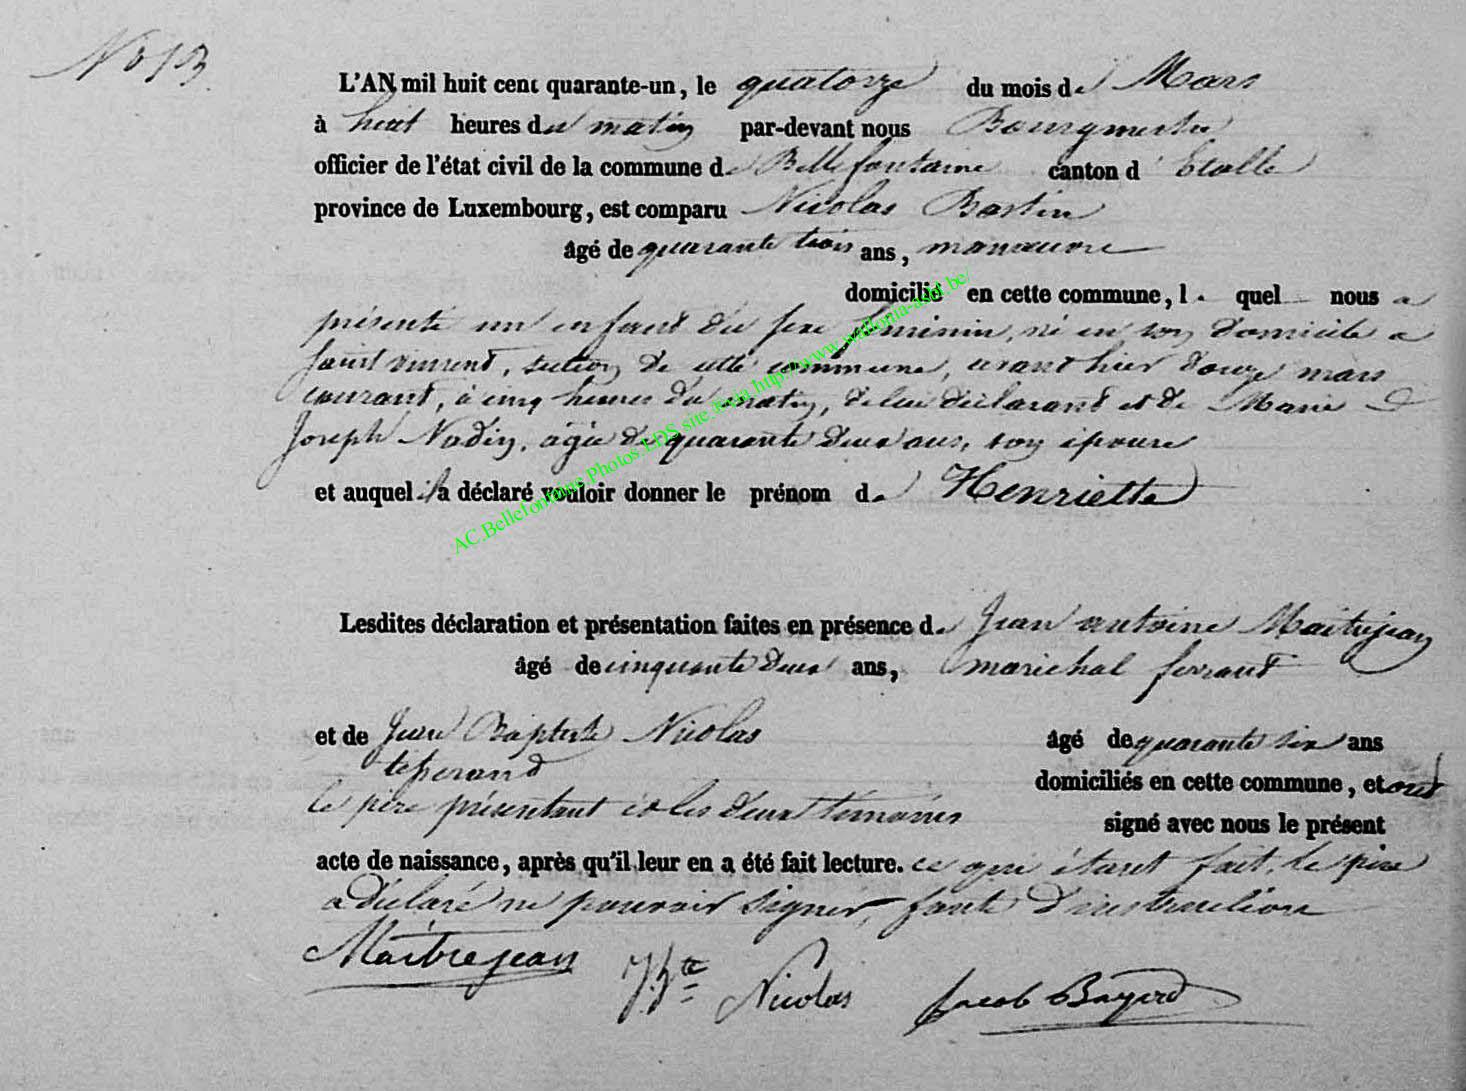 No 13
L'AN mil huit cent quarante-un, le quatorze du mois de Mars
à huit heures du matin par-devant nous Bourgmestre
officier de l'état civil de la commune de Bellefontaine canton d'Etalle
province de Luxembourg, est comparu Nicolas Bastin
âgé de quarante trois ans, manœuvre
domicilié en cette commune, le quel nous a
présenté un enfant du sexe féminin, né en son domicile a
saint vincent, section de cette commune, avant hier douze mars
courant, à cinq heures du matin, de lui déclarant et de Marie
Joseph Nadin, agée de quarante deux ans, son épouse
et auquel il a déclaré vouloir donner le prénom de Henriette
Lesdites déclaration et présentation faites en présence de Jean antoine Maitrejean
âgé de cinquante deux ans, marichal ferrant
et de Jean Baptiste Nicolas âgé de quarante six ans
domiciliés en cette commune, et ont
le père présentant et les deux témoins signé avec nous le présent
acte de naissance, après qu'il leur en a été fait lecture. ce qui étant fait, le père
a déclaré ne pouvoir signer, faute d'instruction
Maitrejean J. Bte Nicolas Jacob Bayard
AC.Bellefontaine.Photos.LDS site.festa http://www.wallonia-asbl.be/